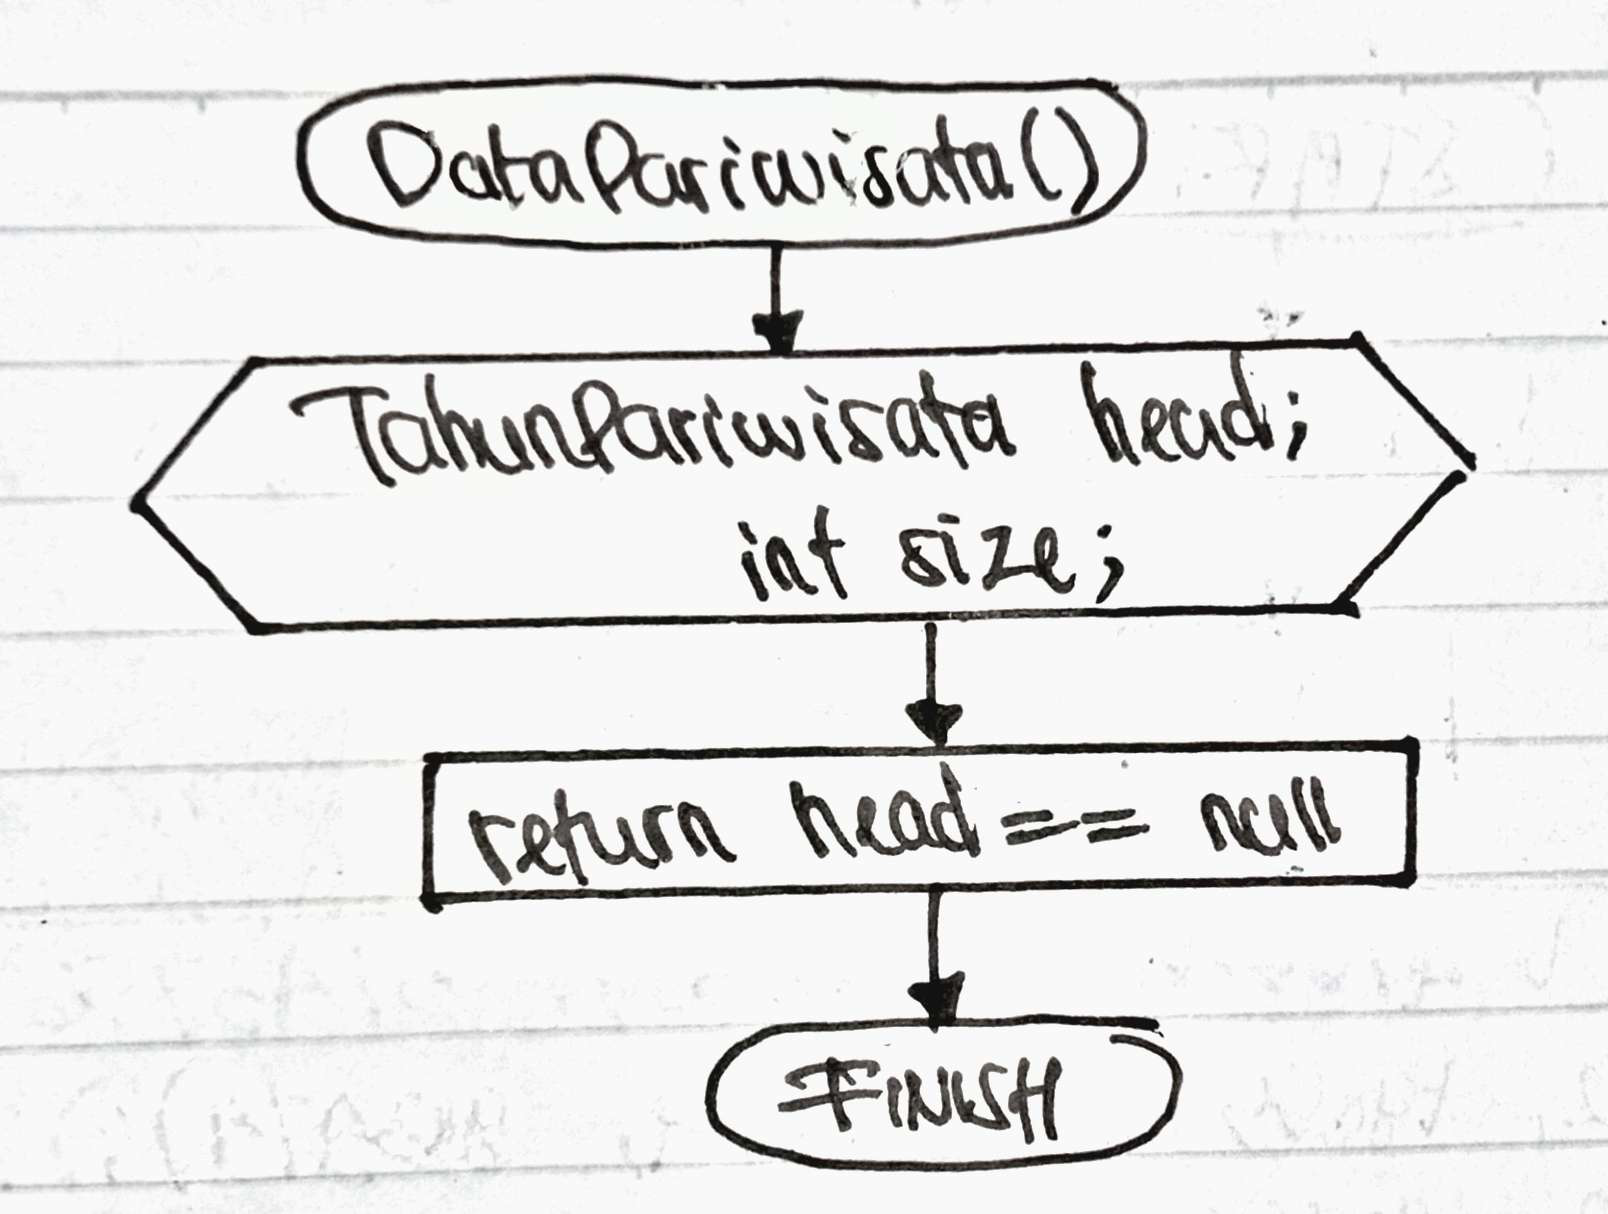 DataPariwisata()
TahunPariwisata head;
int size;
return head == null
FINISH